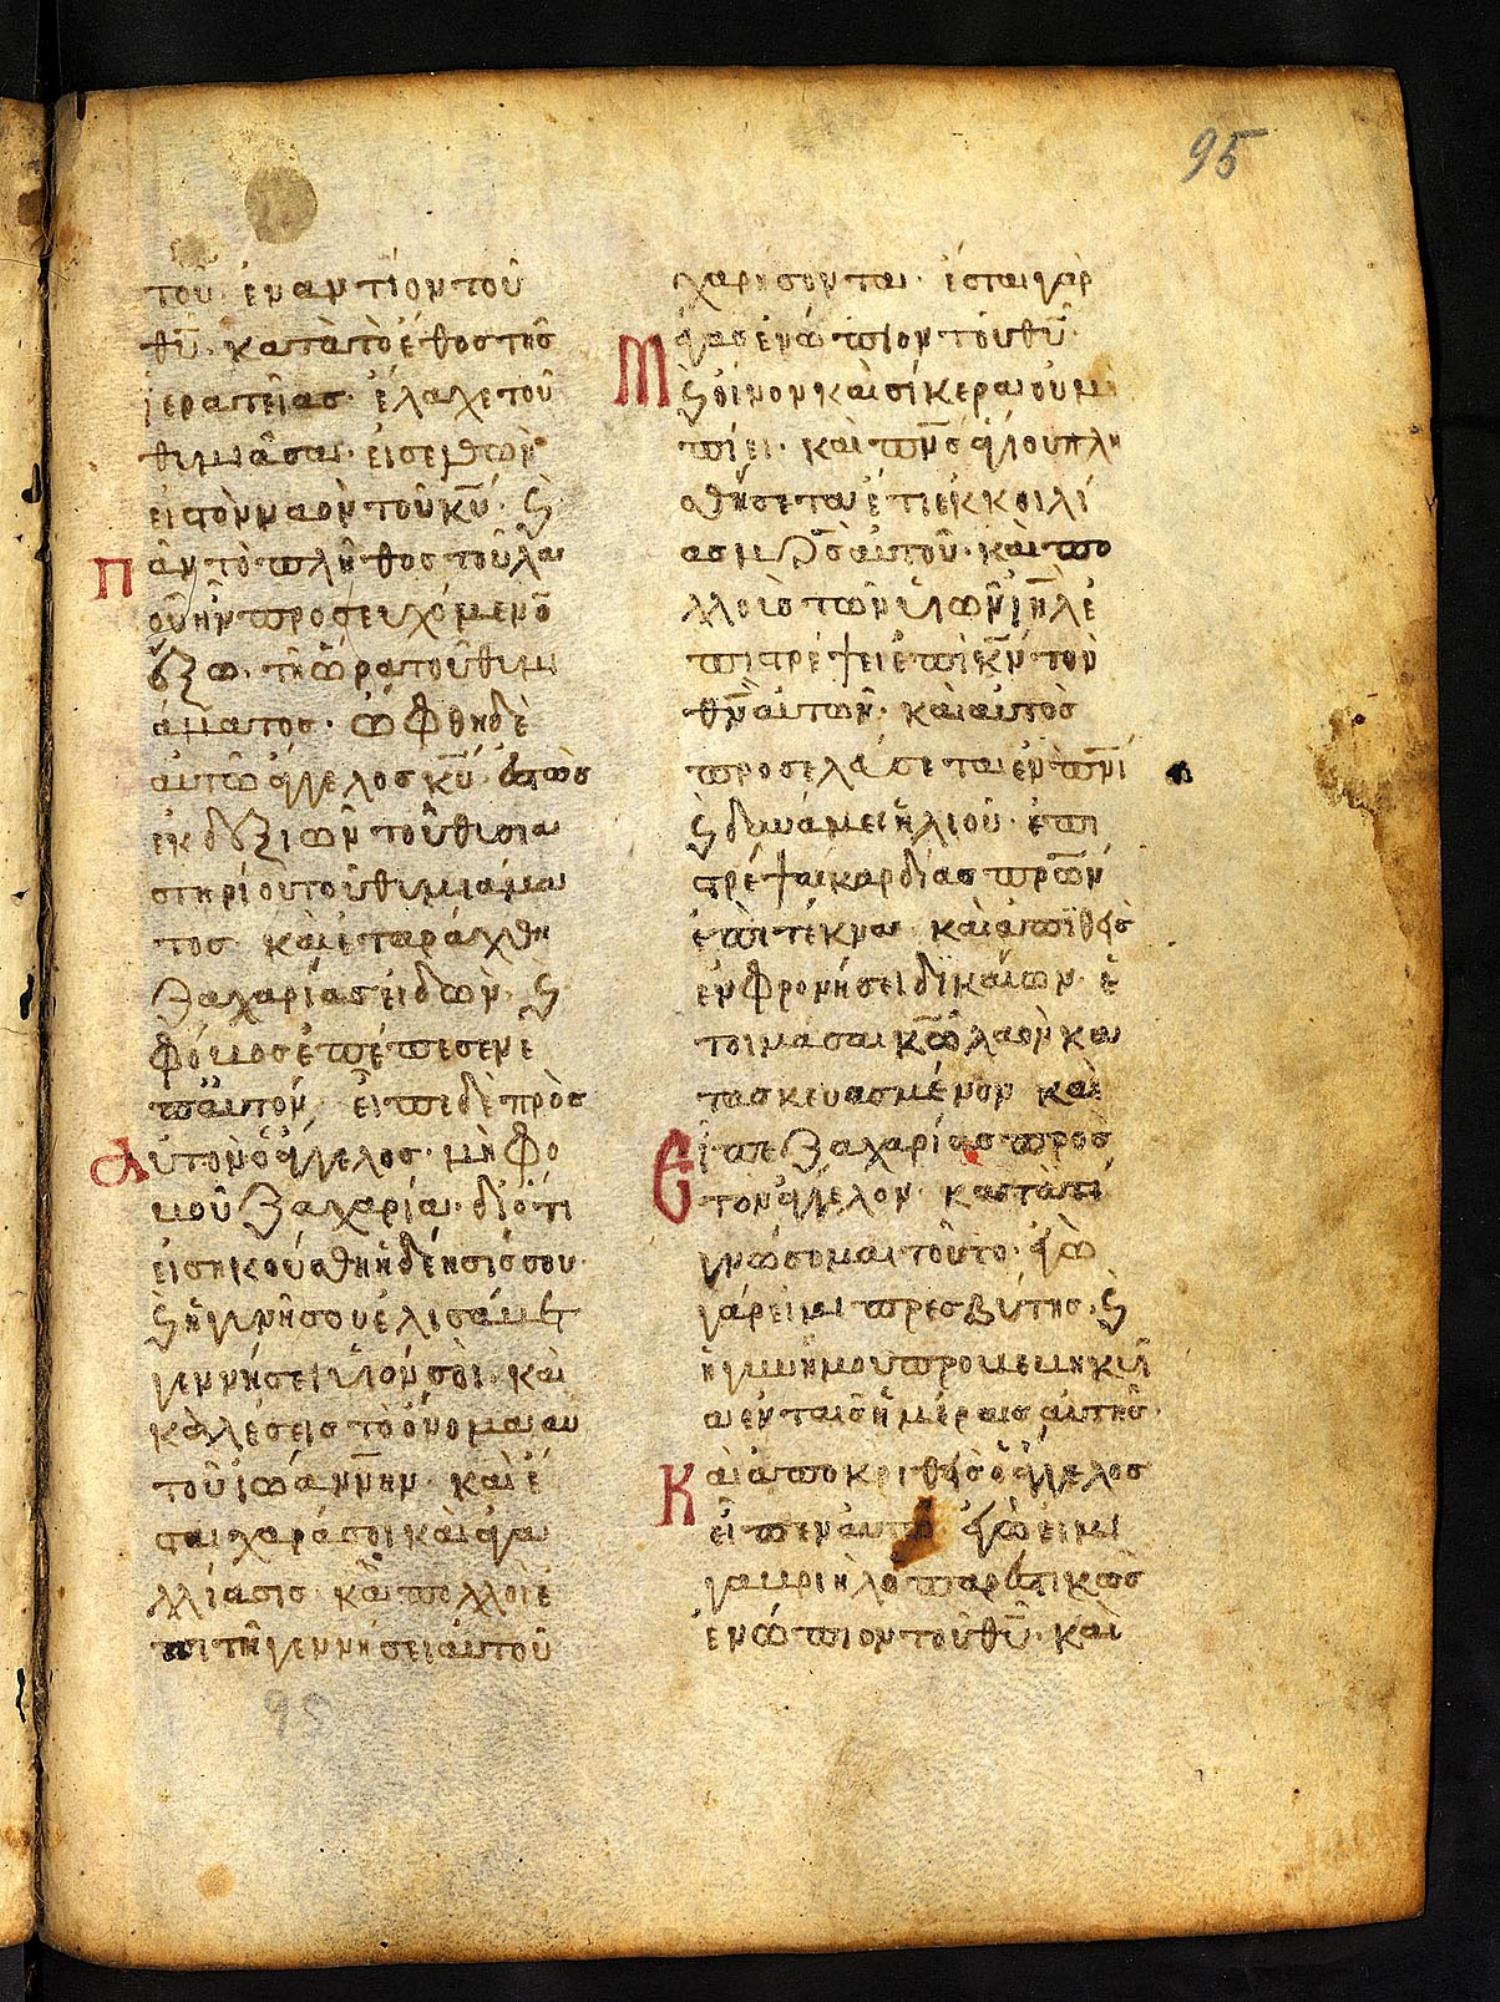 95
του ἐναντίον τοῦ
θ̅υ̅· κατὰ τὸ ἔθος τῆς
ἱερατείας· ἔλαχε τοῦ
θυμιᾶσαι· εἰσελθὼν
εἰς τὸν ναὸν τοῦ κ̅υ̅· ϗ̀
πᾶν τὸ πλῆθος τοῦ λα
οῦ ἦν προσευχόμενο̅
ἔξω· τῇ ὥρα τοῦ θυμι
άματος· ὤφθη δὲ
αὐτῶ ἄγγελος κ̅υ̅· ἑστὼς
ἐκ δεξιῶν τοῦ θυσια
στηρίου τοῦ θυμιάμα
τος· καὶ ἐταράχθη
ζαχαρίας εἰδὼν· ϗ̀
φόβος ἐπέπεσεν ἐ
π' αὐτόν· εἶπε δὲ πρὸς
αὐτὸν ὁ ἄγγελος· μὴ φο
βοῦ ζαχαρία· διότι
εἰσηκούσθη ἡ δέησίς σου·
ϗ̀ ἡ γυνή σου ἐλισάβετ
γεννήσει υἱόν σοι· καὶ
καλέσεις τὸ ὄνομα αυ
τοῦ ἰωάννην· καὶ ἔ
σται χαρά σοι καὶ ἀγα
λλίασις· καὶ πολλοὶ ἐ
πὶ τῆ γεννήσει αὐτοῦ
χαρήσονται· ἔσται γὰρ
μέγας ἐνώπιον τοῦ θ̅υ̅·
ϗ̀ οἶνον καὶ σίκερα οὐ μὴ
πίει· καὶ π̅ν̅ς ἁγίου πλη
σθήσεται ἔτι ἐκ κοιλί
ας μ̅ρ̅ς αὐτοῦ· καὶ πο
λλοὺς τῶν υἱῶν ι̅η̅λ ἐ
πιστρέψει ἐπὶ κ̅ν̅ τὸν
θ̅ν̅ αὐτῶν· καὶ αὐτὸς
προσελεύσεται ἐν π̅ν̅ι
ϗ̀ δυνάμει ἡλιού· ἐπι
στρέψαι καρδίας π̅ρ̅ων
ἐπὶ τέκνα· καὶ ἀπειθεῖς
ἐν φρονήσει δικαίων· ἑ
τοιμάσαι κ̅ω̅ λαὸν κα
τασκευασμένον· καὶ
εἶπε ζαχαρίας πρὸς
τὸν ἄγγελον· κατὰ τί
γνώσομαι τοῦτο· ἐγὼ
γάρ εἰμι πρεσβύτης· ϗ̀
ἡ γυνή μου προβεβηκυῖ
α ἐν ταῖς ἡμέραις αὐτῆς·
Καὶ ἀποκριθεὶς ὁ ἄγγελος
εἶπεν αὐτῶ· ἐγώ εἰμι
γαβριὴλ ὁ παρεστικὼς
ἐνώπιον τοῦ θ̅υ̅· καὶ
95